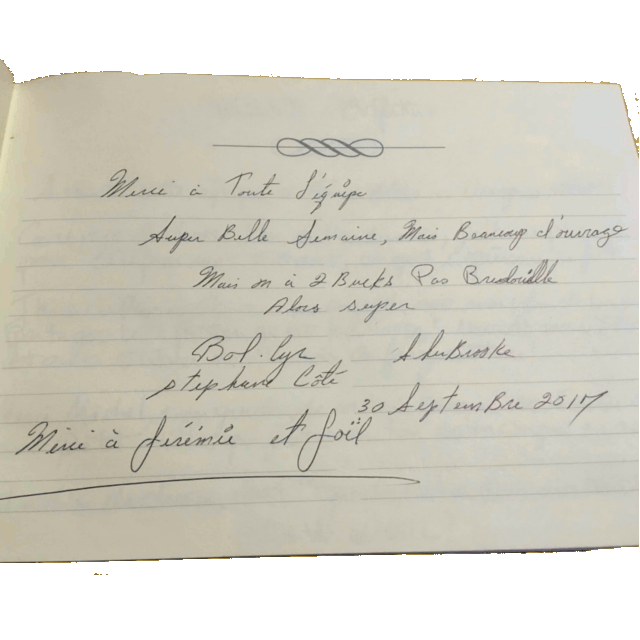 Merci à Toute l'équipe
Super Belle Semaine, Mais Beaucoup d'ouvrage
Mais on à 2 Bucks Pas Bredouille
Alors super
SherBrooke
stephane Côté
30 Septembre 2017
Merci à Jérémie et Joël